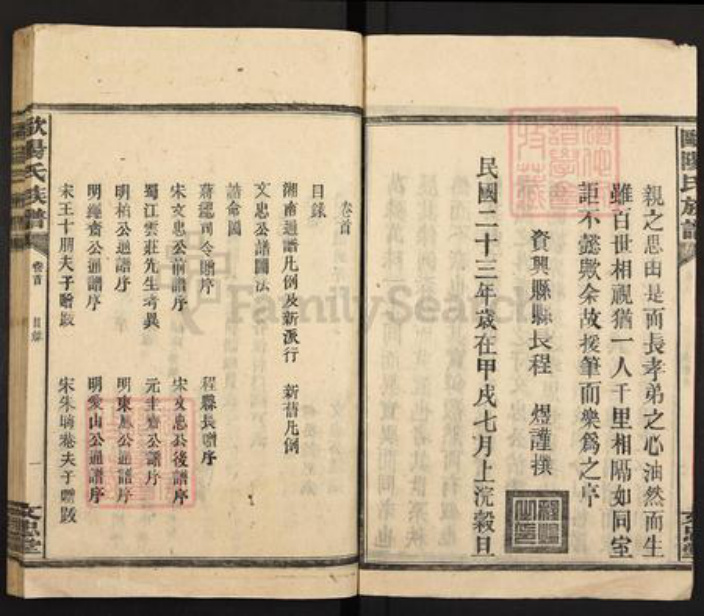 親之思由是而長孝弟之心油然而生
雖百世相視猶一人千里相隔如同室
詎不懿歟余故援筆而樂爲之序
資興縣縣長程 煜謹撰
民國二十三年歲在甲戌七月上浣穀旦
歐陽氏族譜
文忠堂
卷首
目錄
湘南通譜凡例及新派行 新舊凡例
文忠公譜圖法
誥命圖
蔣總司令贈序 程縣長贈序
宋文忠公前譜序 宋文忠公後譜序
蜀江雲莊先生考異 元圭齋公譜序
明柏公通譜序 明東鳳公通譜序
明經齋公通譜序 明象山公通譜序
宋王十朋夫子贈跋 宋朱晦菴夫子贈跋
歐陽氏族譜
卷首 目錄 一
文忠堂
FamilySearch